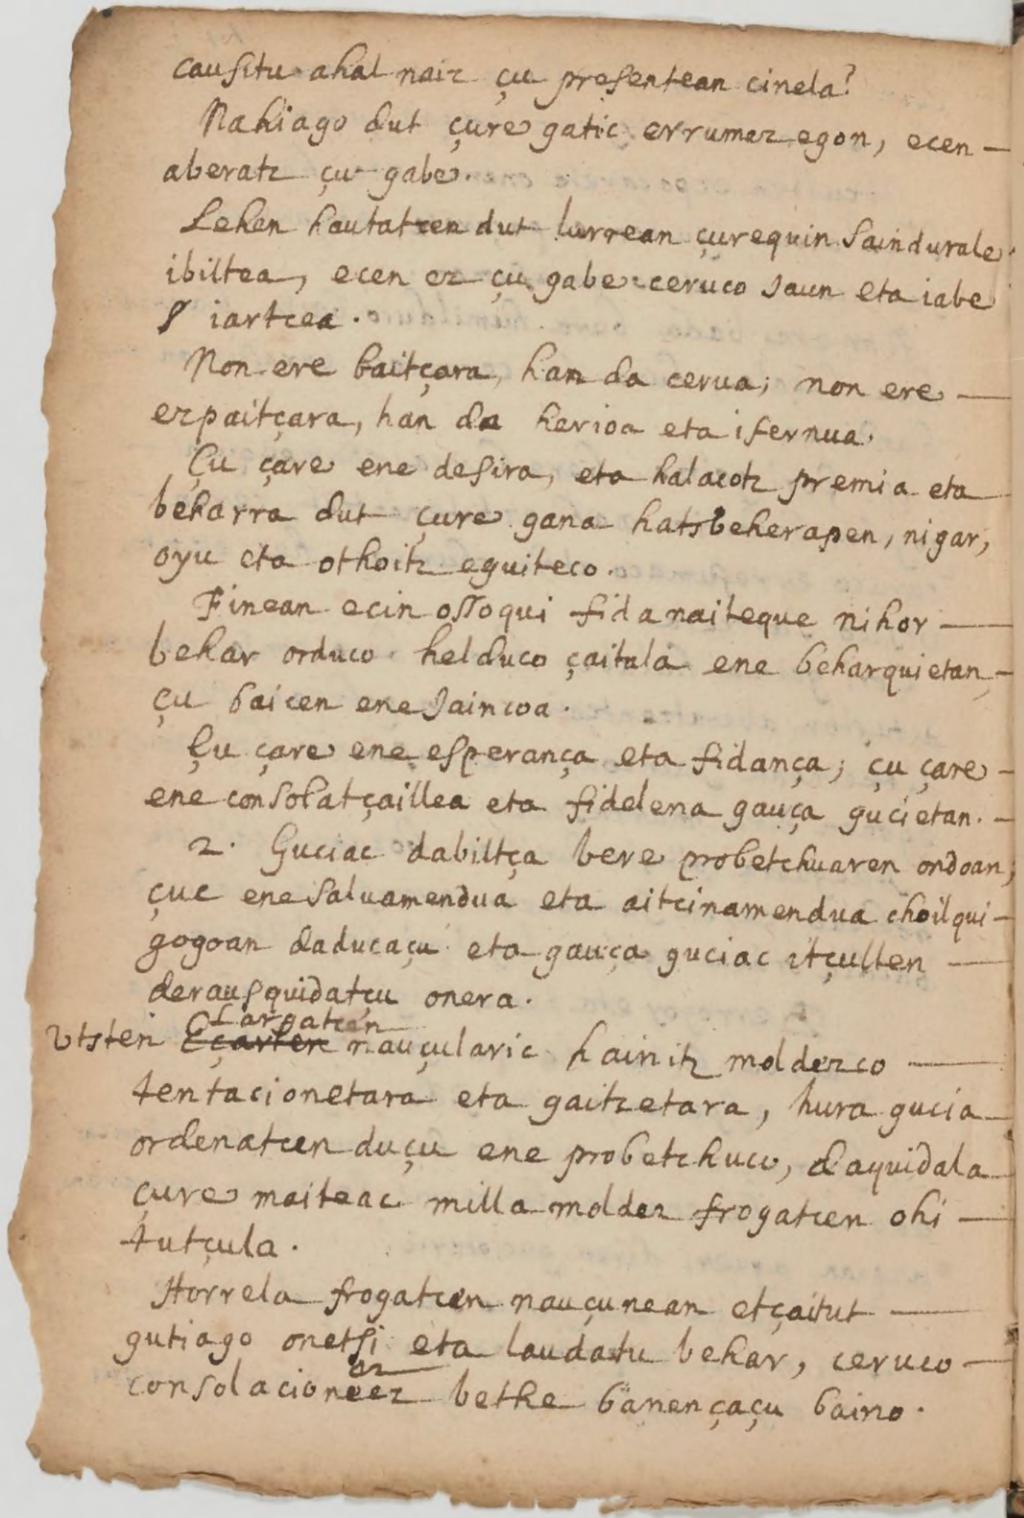 causitu ahal naiz çu presentean cinela?
Nahiago dut çure gatic errumez egon, ecen —
aberatz çu gabe.
Lehen hautatcen dut lurrean çurequin Saindurale
ibiltea, ecen ez çu gabe ceruco Jaun eta iabe
iartcea.
Non ere baitçara, han da cerua; non ere —
ezpaitçara, han da herioa eta ifernua.
Çu çare ene desira, eta halacotz premia eta
beharra dut çure gana hatsbeherapen, nigar,
oyu eta othoitz eguiteco.
Finean ecin ossoqui fida naiteque nihor —
behar orduco helduco çaitala ene beharquietan, —
çu baicen ene Jaincoa.
Çu çare ene esperança eta fidança; çu çare —
ene consolatçaillea eta fidelena gauça gucietan. —
2. Guciac dabiltça bere probetchuaren ondoan;
çuc ene saluamendua eta aitcinamendua choilqui —
gogoan daducaçu eta gauça guciac itçultcen —
derausquidatçu onera.
Largatcen
Utsten Eçarten nauçularic hainitz moldezco —
tentacionetara eta gaitzetara, hura gucia
ordenatcen duçu ene probetchuco, daquidala
çure maiteac milla moldez frogatcen ohi —
tutçula.
Horrela frogatcen nauçunean etçaitut —
gutiago onetsi eta laudatu behar, ceruco —
ez
consolacioneez bethe banençaçu baino.